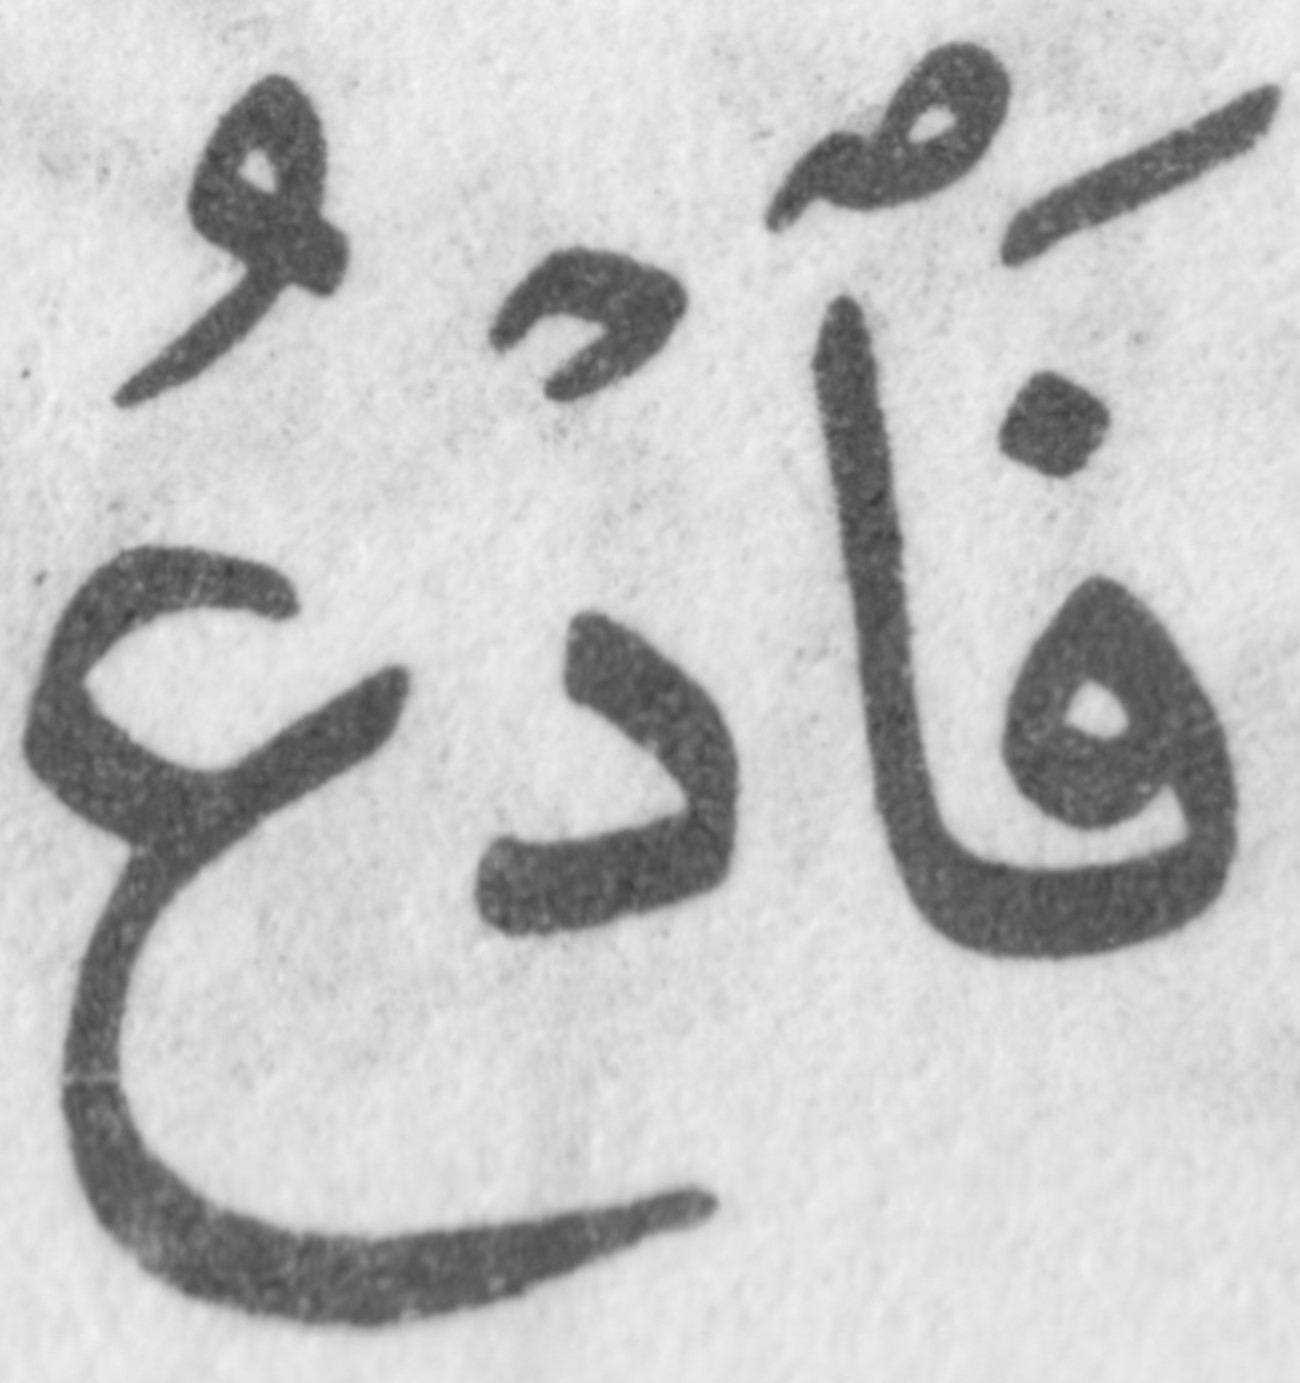 فَٱدْعُ